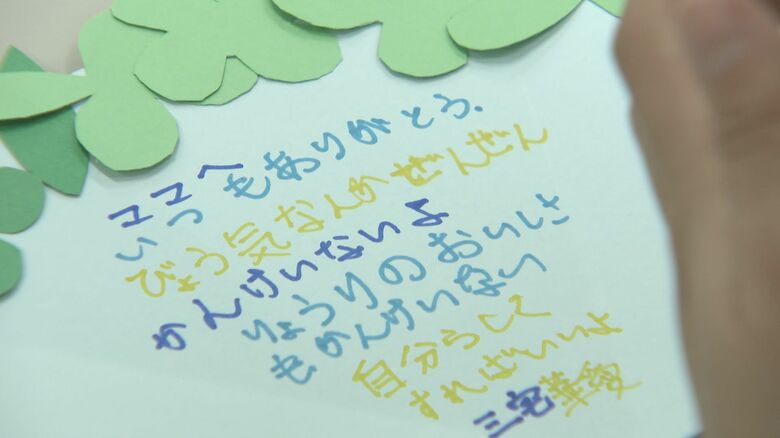 ココへ
いつもありがとう.
びょう気なんかぜんぜん
かんけいないよ
りょうりのおいしさ
もかんけいない
自分らしく
すればいいよ
三宅華愛